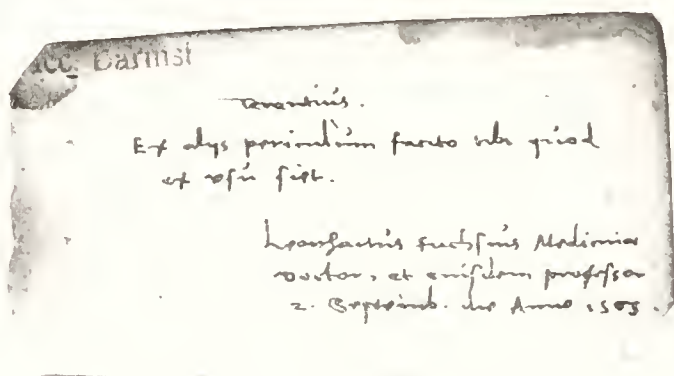 Acc. Darmst
Terentius.
Ex alijs periculum facito tibi quod
ex usu siet.
Leonhartus Fuchsius Medicinae
Doctor, et eiusdem professor
2. Septemb. die Anno 1565.